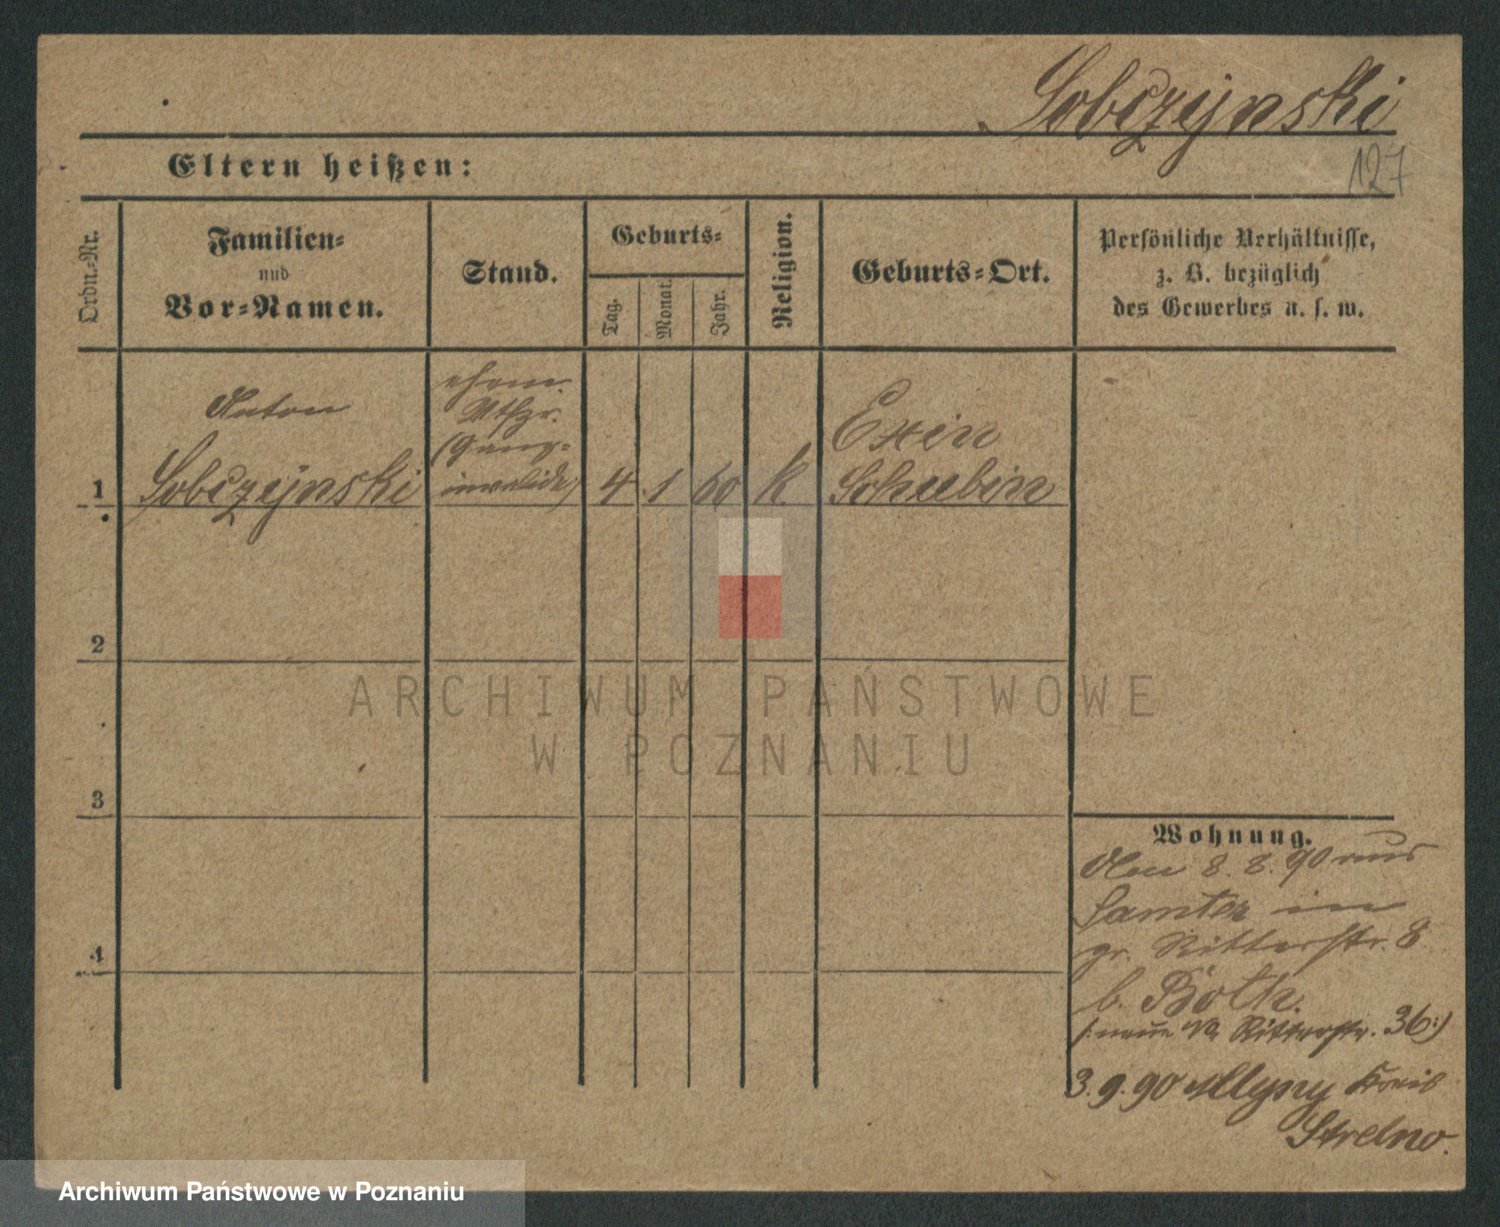 Sobczynski
Eltern heißen:
127
Ordn.-Nr.
Familien-
und
Vor-Namen.
Stand.
Geburts-
Tag.
Monat.
Jahr.
Religion.
Geburts-Ort.
Persönliche Verhältnisse,
z. B. bezüglich
des Gewerbes u. s. w.
Anton
Sobczynski
ehem.
(Ganz-
invalide)
4 1 60 k
Exin
Schubin
1
2
3
4
ARCHIWUM PAŃSTWOWE
W POZNANIU
Wohnung.
Den 8. 8. 90 aus
Samter in
gr. Ritterstr. 8
b. Both.
(: neue No Ritterstr. 36 :)
3. 9. 90 Mlyny Kreis
Strelno.
Archiwum Państwowe w Poznaniu